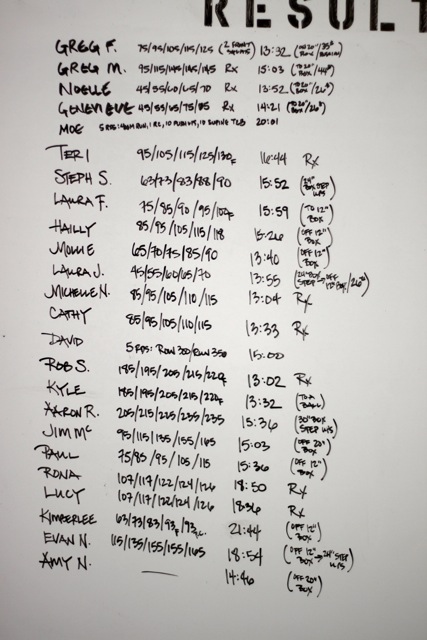 RESULT
GREG F. 75/95/105/115/125 (2 FRONT SQUATS) 13:32
GREG M. 95/115/145/165/165 Rx 15:03 (TO 20"/44#)
NOELLE 45/55/60/65/70 Rx 13:52 (TO 20" BOX/26#)
GENEVIEVE 45/55/65/75/85 Rx 14:21 (TO 20" BOX/26#)
MOE 5 RDS: 400M RUN, 1 RC, 10 PUSH UPS, 10 SUPINE T2B 20:01
TERI 95/105/115/125/130F 16:44 Rx
STEPH S. 63/73/83/88/90 15:52 (24" BOX STEP UPS)
LAURA F. 75/85/90/95/100F 15:59 (TO 12" BOX)
HAILLY 85/95/105/115/118 15:26 (OFF 12" BOX)
MOLLIE 65/70/75/85/90 13:40 (OFF 12" BOX)
LAURA J. 45/55/60/65/70 13:55 (24" BOX STEP → OFF 12" BOX/26#)
MICHELLE N. 85/95/105/110/115 13:04 Rx
CATHY 85/95/105/110/115 13:33 Rx
DAVID 5 RDS: ROW 300/RUN 350 15:00
ROB S. 185/195/205/215/220F 13:02 Rx
KYLE 185/195/205/215/220F 13:32 (TO A BALL)
AARON R. 205/215/225/235/235 15:36 (30" BOX STEP UPS)
JIM MC 95/115/135/155/165 15:03 (OFF 20" BOX)
PAUL 75/85/95/105/115 15:36 (OFF 12" BOX)
RONA 107/117/122/124/126 18:50 Rx
LUCY 107/117/122/124/126 18:36 Rx
KIMBERLEE 63/73/83/93F/93 21:44 (OFF 12" BOX)
EVAN N. 115/135/155/155/165 18:54 (OFF 12" BOX → 24" STEP UPS)
AMY N. 14:46 (OFF 20" BOX)